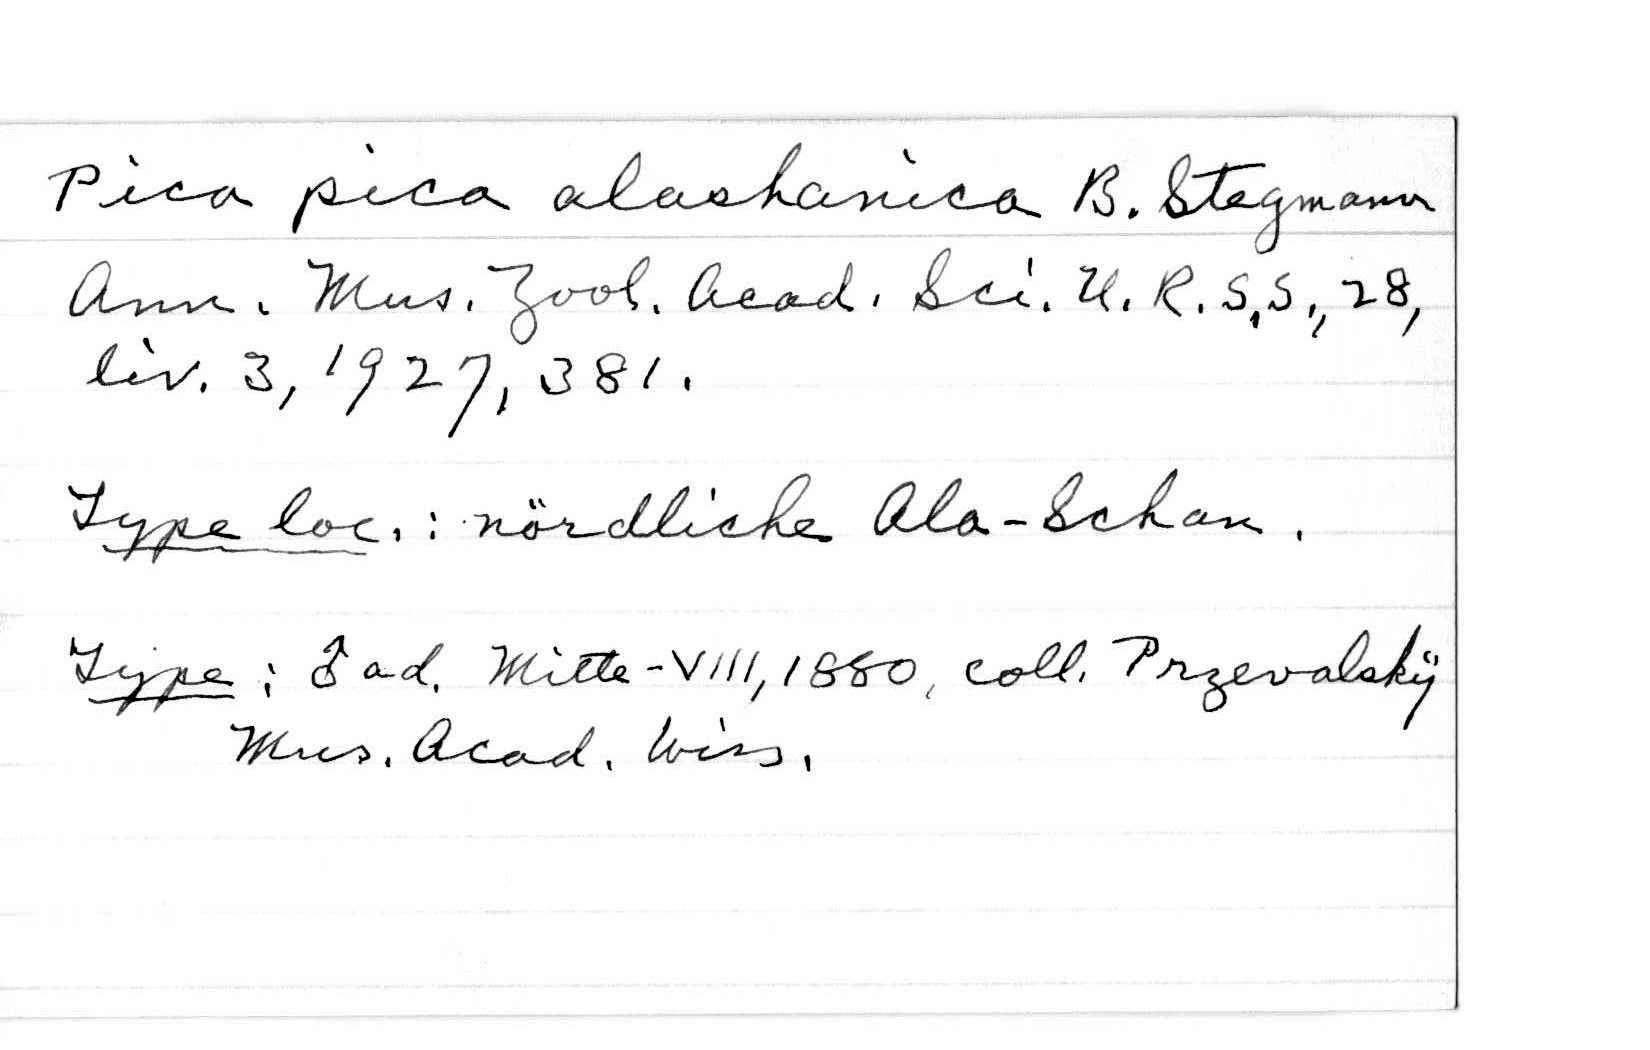 Pica pica alashanica B. Stegmann
Ann. Mus. Zool. Acad. Sci. U.R.S.S., 28,
liv. 3, 1927, 381.
Type loc.: nördliche Ala-Schan.
Type: ♂ ad. Mitte-VIII, 1880, coll. Przevalskÿ
Mus. Acad. Wiss.